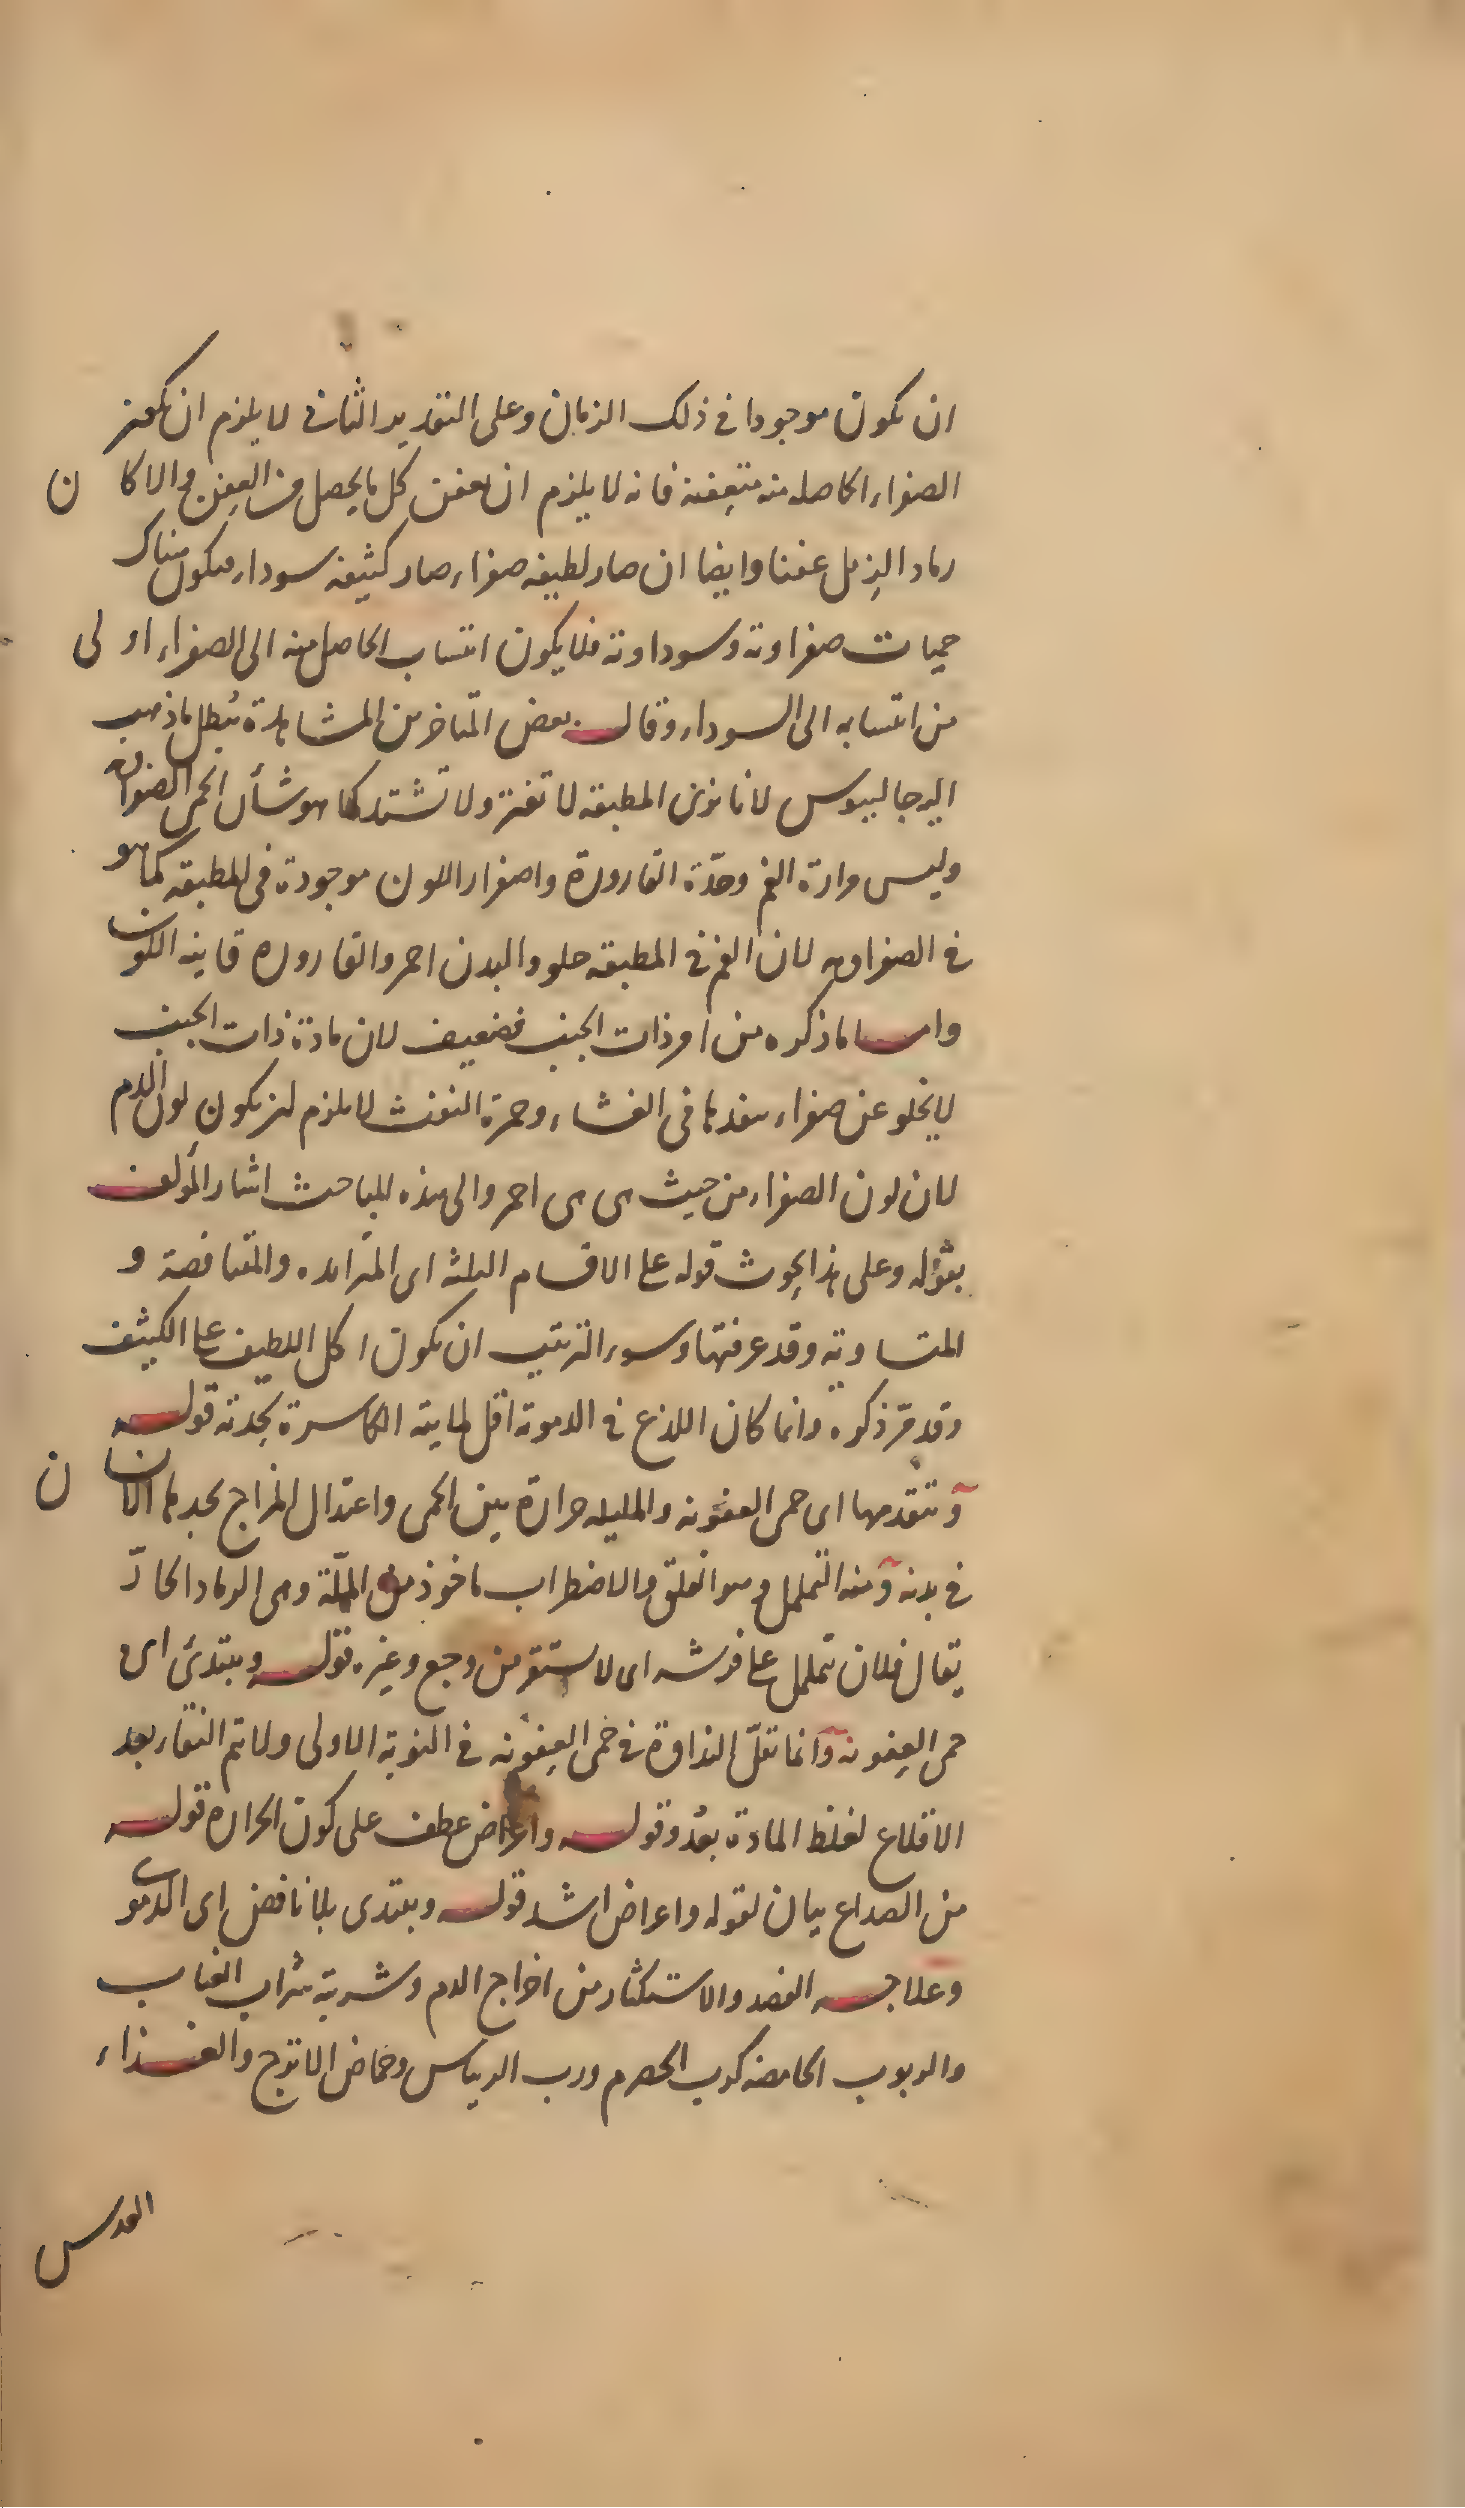 ان يكون موجودا في ذلك الزمان وعلى التقدير الثاني لا يلزم ان يكون
الصفراء الحاصلة منه متعفنة فانه لا يلزم ان يعفن كل ما يحصل من العفن والا كان
رماد الزبل عفنا وايضا ان صار لطيفه صفراء صار كثيفه سوداء فيكون هناك
حميات صفراوية وسوداوية فلا يكون انتساب الحاصل منه الى الصفراء اولى
من انتسابه الى السوداء وقال بعض المتاخرين المشاهدة تبطل ما ذهب
اليه جالينوس لانا نرى المطبقة لا تفتر ولا تشتد كما هو شأن الحمى الصفراوية
وليس مرارة الفم وحدّة القارورة واصفرار اللون موجودة في المطبقة كما هو
في الصفراوية لان الفم في المطبقة حلو والبدن احمر والقارورة قانية اللون
واما ما ذكره من امر ذات الجنب فضعيف لان مادة ذات الجنب
لا يخلو عن صفراء ينفذها في الغشاء وحمرة النفث لا يلزم ان يكون لون الدم
لان لون الصفراء من حيث هي هي احمر والى هذه المباحث اشار المؤلف
بقوله وعلى هذا بحوث قوله على الاقسام الثلثة اى المتزايده والمتناقصة و
المتساوية وقد عرفتها وسوء الترتيب ان يكون اكل اللطيف على الكثيف
وقد مرّ ذكره وانما كان اللذع في الدموية اقل لمايته الكاسرة بحدته قوله
وتتقدمها اى حمى العفونه والمليله حرارة بين الحمى واعتدال المزاج يجدها الانسان
في بدنه ومنه التململ وهو القلق والاضطراب ماخوذ من الملّة وهى الرماد الحارّ
يقال فلان تململ على فرشه اى لا يستقر من وجع وغيره قوله ويبتدئ اى
حمى العفونه وانما تقلّ النداوة في حمى العفونه في النوبة الاولى ولا يتم النقاء بعد
الاقلاع لغلظ المادة بعدُ وقوله واعراض عطف على كون الحرارة قوله
من الصداع بيان لقوله واعراض اشد قوله ويبتدى بلا نافض اى الدموى
وعلاجه الفصد والاستكثار من اخراج الدم وشربة شراب العناب
والربوب الحامضه كرب الحصرم ورب الريباس وحماض الاترج والغذاء
العدس